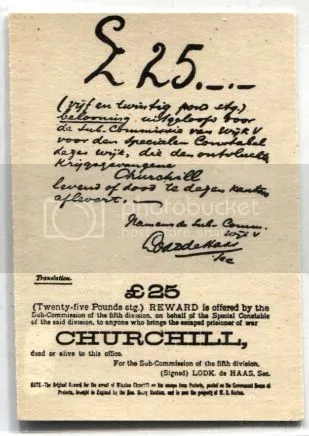 £25.-.-
(vijf en twintig pond stg.)
belooning uitgeloofd door
de Sub-Commissie van Wijk V
voor den Specialen Constabel
dezes wijk, die den ontvluchte
Krijgsgevangene
Churchill
levend of dood te dezen kantore
aflevert.
Namens de Sub-Comm.
Wijk V
Lodk de Haas
Sec
photobucket
Translation.
£25
(Twenty-five Pounds stg.) REWARD is offered by the
Sub-Commission of the fifth division, on behalf of the Special Constable
of the said division, to anyone who brings the escaped prisoner of war
CHURCHILL,
dead or alive to this office.
For the Sub-Commission of the fifth division.
(Signed) LODK. de HAAS, Sec.
NOTE.-The Original Reward for the arrest of Winston Churchill on his escape from Pretoria, posted on the Government House at
Pretoria, brought to England by the Hon. Henry Masham, and is now the property of W. R. Burton.